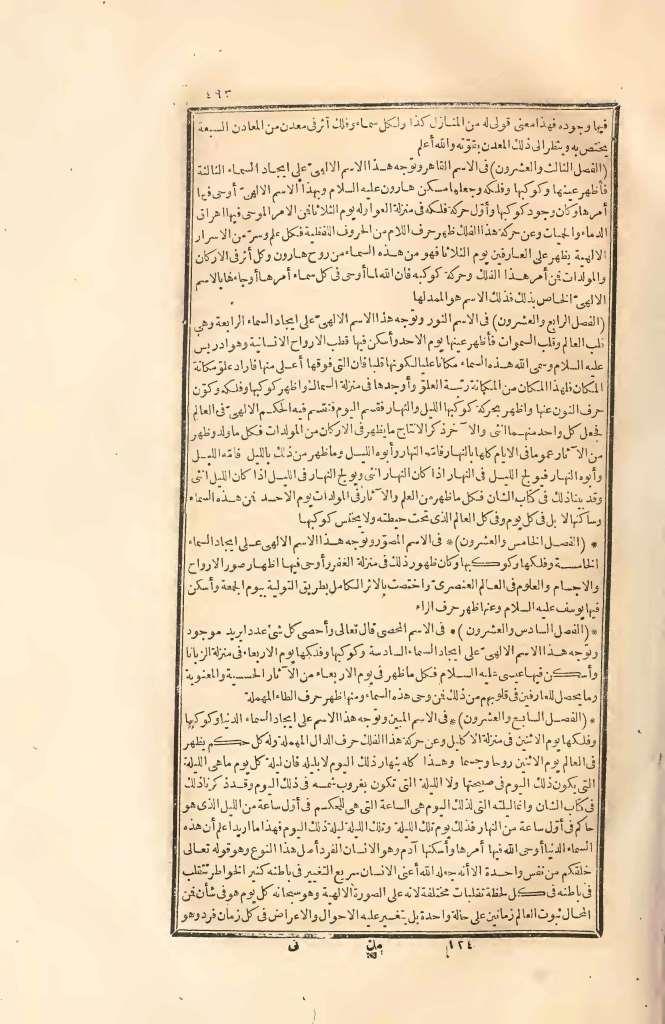 ٤٩٣
فيها وجوده فهذا معنى قولى له من المنازل كذا ولكل سماء وفلك أثر فى معدن من المعادن السبعة
يختص به وينظر الى ذلك المعدن بقوّته والله أعلم
(الفصل الثالث والعشرون) فى الاسم القاهر وتوجه هذا الاسم الالهىّ على ايجاد السماء الثالثة
فأظهر عينها وكوكبها وفلكه وجعلها مسكن هارون عليه السلام وبهذا الاسم الالهىّ أوحى فيها
أمرها وكان وجود كوكبها وأوّل حركة فلكه فى منزلة العوا وله يوم الثلاثا فمن الامر الموحى فيها اهراق
الدماء والحميات وعن حركة هذا الفلك ظهر حرف اللام من الحروف اللفظية فكل علم وسرّ من الاسرار
الالهية يظهر على العارفين يوم الثلاثا فهو من هذه السماء من روح هارون وكل أثر فى الاركان
والمولدات فمن أمر هذا الفلك وحركة كوكبه فان الله لما أوحى فى كل سماء أمرها أوحاها بالاسم
الالهىّ الخاص بذلك فذلك الاسم هو الممد لها
(الفصل الرابع والعشرون) فى الاسم النور وتوجه هذا الاسم الالهىّ على ايجاد السماء الرابعة وهى
قلب العالم وقلب السموات فأظهر عينها يوم الاحد وأسكن فيها قطب الارواح الانسانية وهو ادريس
عليه السلام وسمى الله هذه السماء مكانا عليا لكونها قلبا فان التى فوقها أعلى منها فاراد علوّ مكانة
المكان فلهذا المكان من المكانة رتبة العلوّ وأوجدها فى منزلة السماك وأظهر كوكبها وفلكه وكوّن
حرف النون عنها وأظهر بحركة كوكبها الليل والنهار فقسم اليوم فتقسم فيه الحكم الالهىّ فى العالم
فجعل كل واحد منهما انثى والآخر ذكر الانتاج ما يظهر فى الاركان من المولدات فكل ما ولد وظهر
من الآثار عموما فى الايام كلها بالنهار فأمّه النهار وأبوه الليل وما ظهر من ذلك بالليل فأمّه الليل
وأبوه النهار فيولج الليل فى النهار اذا كان النهار انثى ويولج النهار فى الليل اذا كان الليل انثى
وقد بينا ذلك فى كتاب الشان فكل ما ظهر من العلم والآثار فى المولدات يوم الاحد فمن هذه السماء
وساكنها لا بل فى كل يوم وفى كل العالم الذى تحت حيطته ولا يختص كوكبها
* (الفصل الخامس والعشرون)* فى الاسم المصوّر وتوجه هذا الاسم الالهى على ايجاد السماء
الخامسة وفلكها وكوكبها وكان ظهور ذلك فى منزلة الغفر وأوحى فيها اظهار صور الارواح
والاجسام والعلوم فى العالم العنصرى واختصت بالاثر الكامل بطريق التولية بيوم الجمعة وأسكن
فيها يوسف عليه السلام وعنها ظهر حرف الراء
*(الفصل السادس والعشرون)* فى الاسم المحصى قال تعالى وأحصى كل شئ عددا يريد موجود
وتوجه هذا الاسم الالهىّ على ايجاد السماء السادسة وكوكبها وفلكها يوم الاربعاء فى منزلة الزبانا
وأسكن فيها عيسى عليه السلام فكل ما ظهر فى يوم الاربعاء من الآثار الحسية والمعنوية
وما يحصل للعارفين فى قلوبهم من ذلك فمن وحى هذه السماء ومنها ظهر حرف الطاء المهملة
* (الفصل السابع والعشرون)* فى الاسم المبين وتوجه هذا الاسم على ايجاد السماء الدنيا وكوكبها
وفلكها يوم الاثنين فى منزلة الاكليل وعن حركة هذا الفلك حرف الدال المهملة وله كل حكم يظهر
فى العالم يوم الاثنين روحا وجسما وهذا كله بنهار ذلك اليوم لا بليله فان ليلة كل يوم ما هى الليلة
التى يكون ذلك اليوم فى صبيحتها ولا الليلة التى تكون بغروب شمسه فى ذلك اليوم وقد ذكرنا ذلك
فى كتاب الشان وانما ليلته التى لذلك اليوم هى الساعة التى هى للحكم فى أوّل ساعة من الليل الذى هو
حاكم فى أوّل ساعة من النهار فذلك يوم تلك الليلة وتلك الليلة ليلة ذلك اليوم فهذا ما اريد اعلم أن هذه
السماء الدنيا أوحى الله فيها أمرها وأسكنها آدم وهو الانسان الفرد أصل هذا النوع وهو قوله تعالى
خلقكم من نفس واحدة الا أنه جعله الله أعنى الانسان سريع التغيير فى باطنه كثير الخواطر تتقلب
فى باطنه فى كل لحظة تقلبات مختلفة لانه على الصورة الالهية وهو سبحانه كل يوم هو فى شأن فمن
المحال ثبوت العالم زمانين على حالة واحدة بل يتغير عليه الاحوال والاعراض فى كل زمان فرد وهو
١٢٤ مك نى